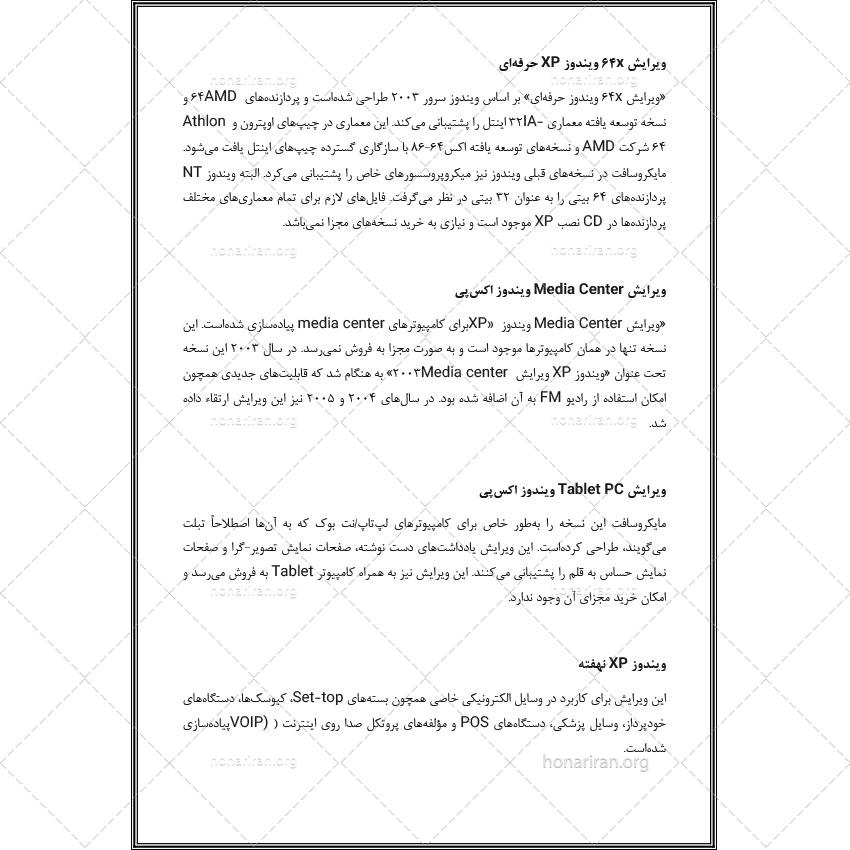 ویرایش ۶۴x ویندوز XP حرفه‌ای
«ویرایش ۶۴x ویندوز حرفه‌ای» بر اساس ویندوز سرور ۲۰۰۳ طراحی شده‌است و پردازنده‌های ۶۴AMD و
نسخه توسعه یافته معماری ۳۲IA- اینتل را پشتیبانی می‌کند. این معماری در چیپ‌های اوپترون و Athlon
۶۴ شرکت AMD و نسخه‌های توسعه یافته اکس۶۴-۸۶ با سازگاری گسترده چیپ‌های اینتل یافت می‌شود.
مایکروسافت در نسخه‌های قبلی ویندوز نیز میکروپروسسورهای خاص را پشتیبانی می‌کرد. البته ویندوز NT
پردازنده‌های ۶۴ بیتی را به عنوان ۳۲ بیتی در نظر می‌گرفت. فایل‌های لازم برای تمام معماری‌های مختلف
پردازنده‌ها در CD نصب XP موجود است و نیازی به خرید نسخه‌های مجزا نمی‌باشد.
ویرایش Media Center ویندوز اکس‌پی
«ویرایش Media Center ویندوز XP» برای کامپیوترهای media center پیاده‌سازی شده‌است. این
نسخه تنها در همان کامپیوترها موجود است و به صورت مجزا به فروش نمی‌رسد. در سال ۲۰۰۳ این نسخه
تحت عنوان «ویندوز XP ویرایش ۲۰۰۳Media center» به هنگام شد که قابلیت‌های جدیدی همچون
امکان استفاده از رادیو FM به آن اضافه شده بود. در سال‌های ۲۰۰۴ و ۲۰۰۵ نیز این ویرایش ارتقاء داده
شد.
ویرایش Tablet PC ویندوز اکس‌پی
مایکروسافت این نسخه را به‌طور خاص برای کامپیوترهای لپ‌تاپ/نت بوک که به آن‌ها اصطلاحاً تبلت
می‌گویند، طراحی کرده‌است. این ویرایش یادداشت‌های دست نوشته، صفحات نمایش تصویر-گرا و صفحات
نمایش حساس به قلم را پشتیبانی می‌کنند. این ویرایش نیز به همراه کامپیوتر Tablet به فروش می‌رسد و
امکان خرید مجزای آن وجود ندارد.
ویندوز XP نهفته
این ویرایش برای کاربرد در وسایل الکترونیکی خاصی همچون بسته‌های Set-top، کیوسک‌ها، دستگاه‌های
خودپرداز، وسایل پزشکی، دستگاه‌های POS و مؤلفه‌های پروتکل صدا روی اینترنت ( VOIP) پیاده‌سازی
شده‌است.
honariran.org